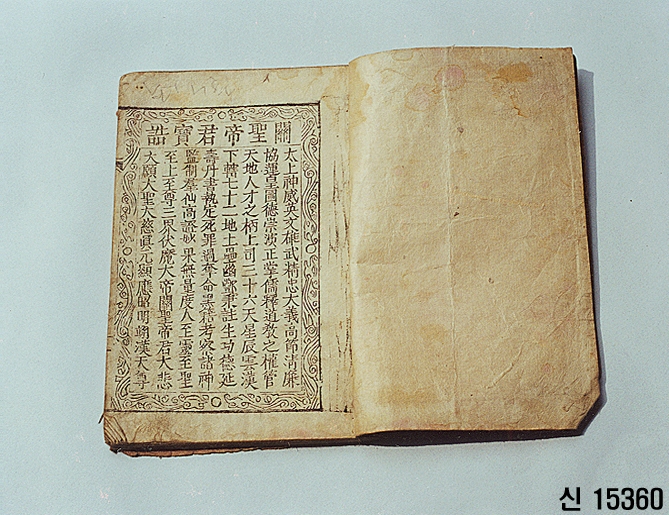 關聖帝君寶誥
太上神威英文雄武精忠大義高節清廉
協運皇國德崇演正掌儒釋道教之權管
天地人才之柄上司三十六天星辰雲漢
下轄七十二地土壘幽酆秉註生功德延
壽丹書執定死罪過奪命黑籍考察諸神
監制羣仙高證妙果無量度人至靈至聖
至上至尊三界伏魔大帝關聖帝君大悲
大願大聖大慈眞元顯應昭明翊漢天尊
신 15360